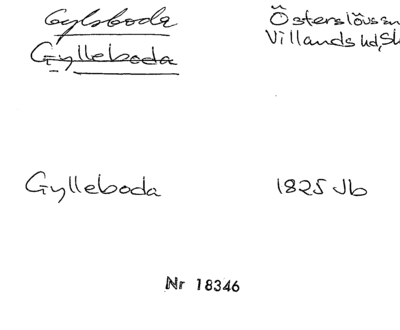 Gylsboda Österslövs sn
Gylleboda Villands hd, Sk
Gylleboda 1825 Jb
Nr 18346